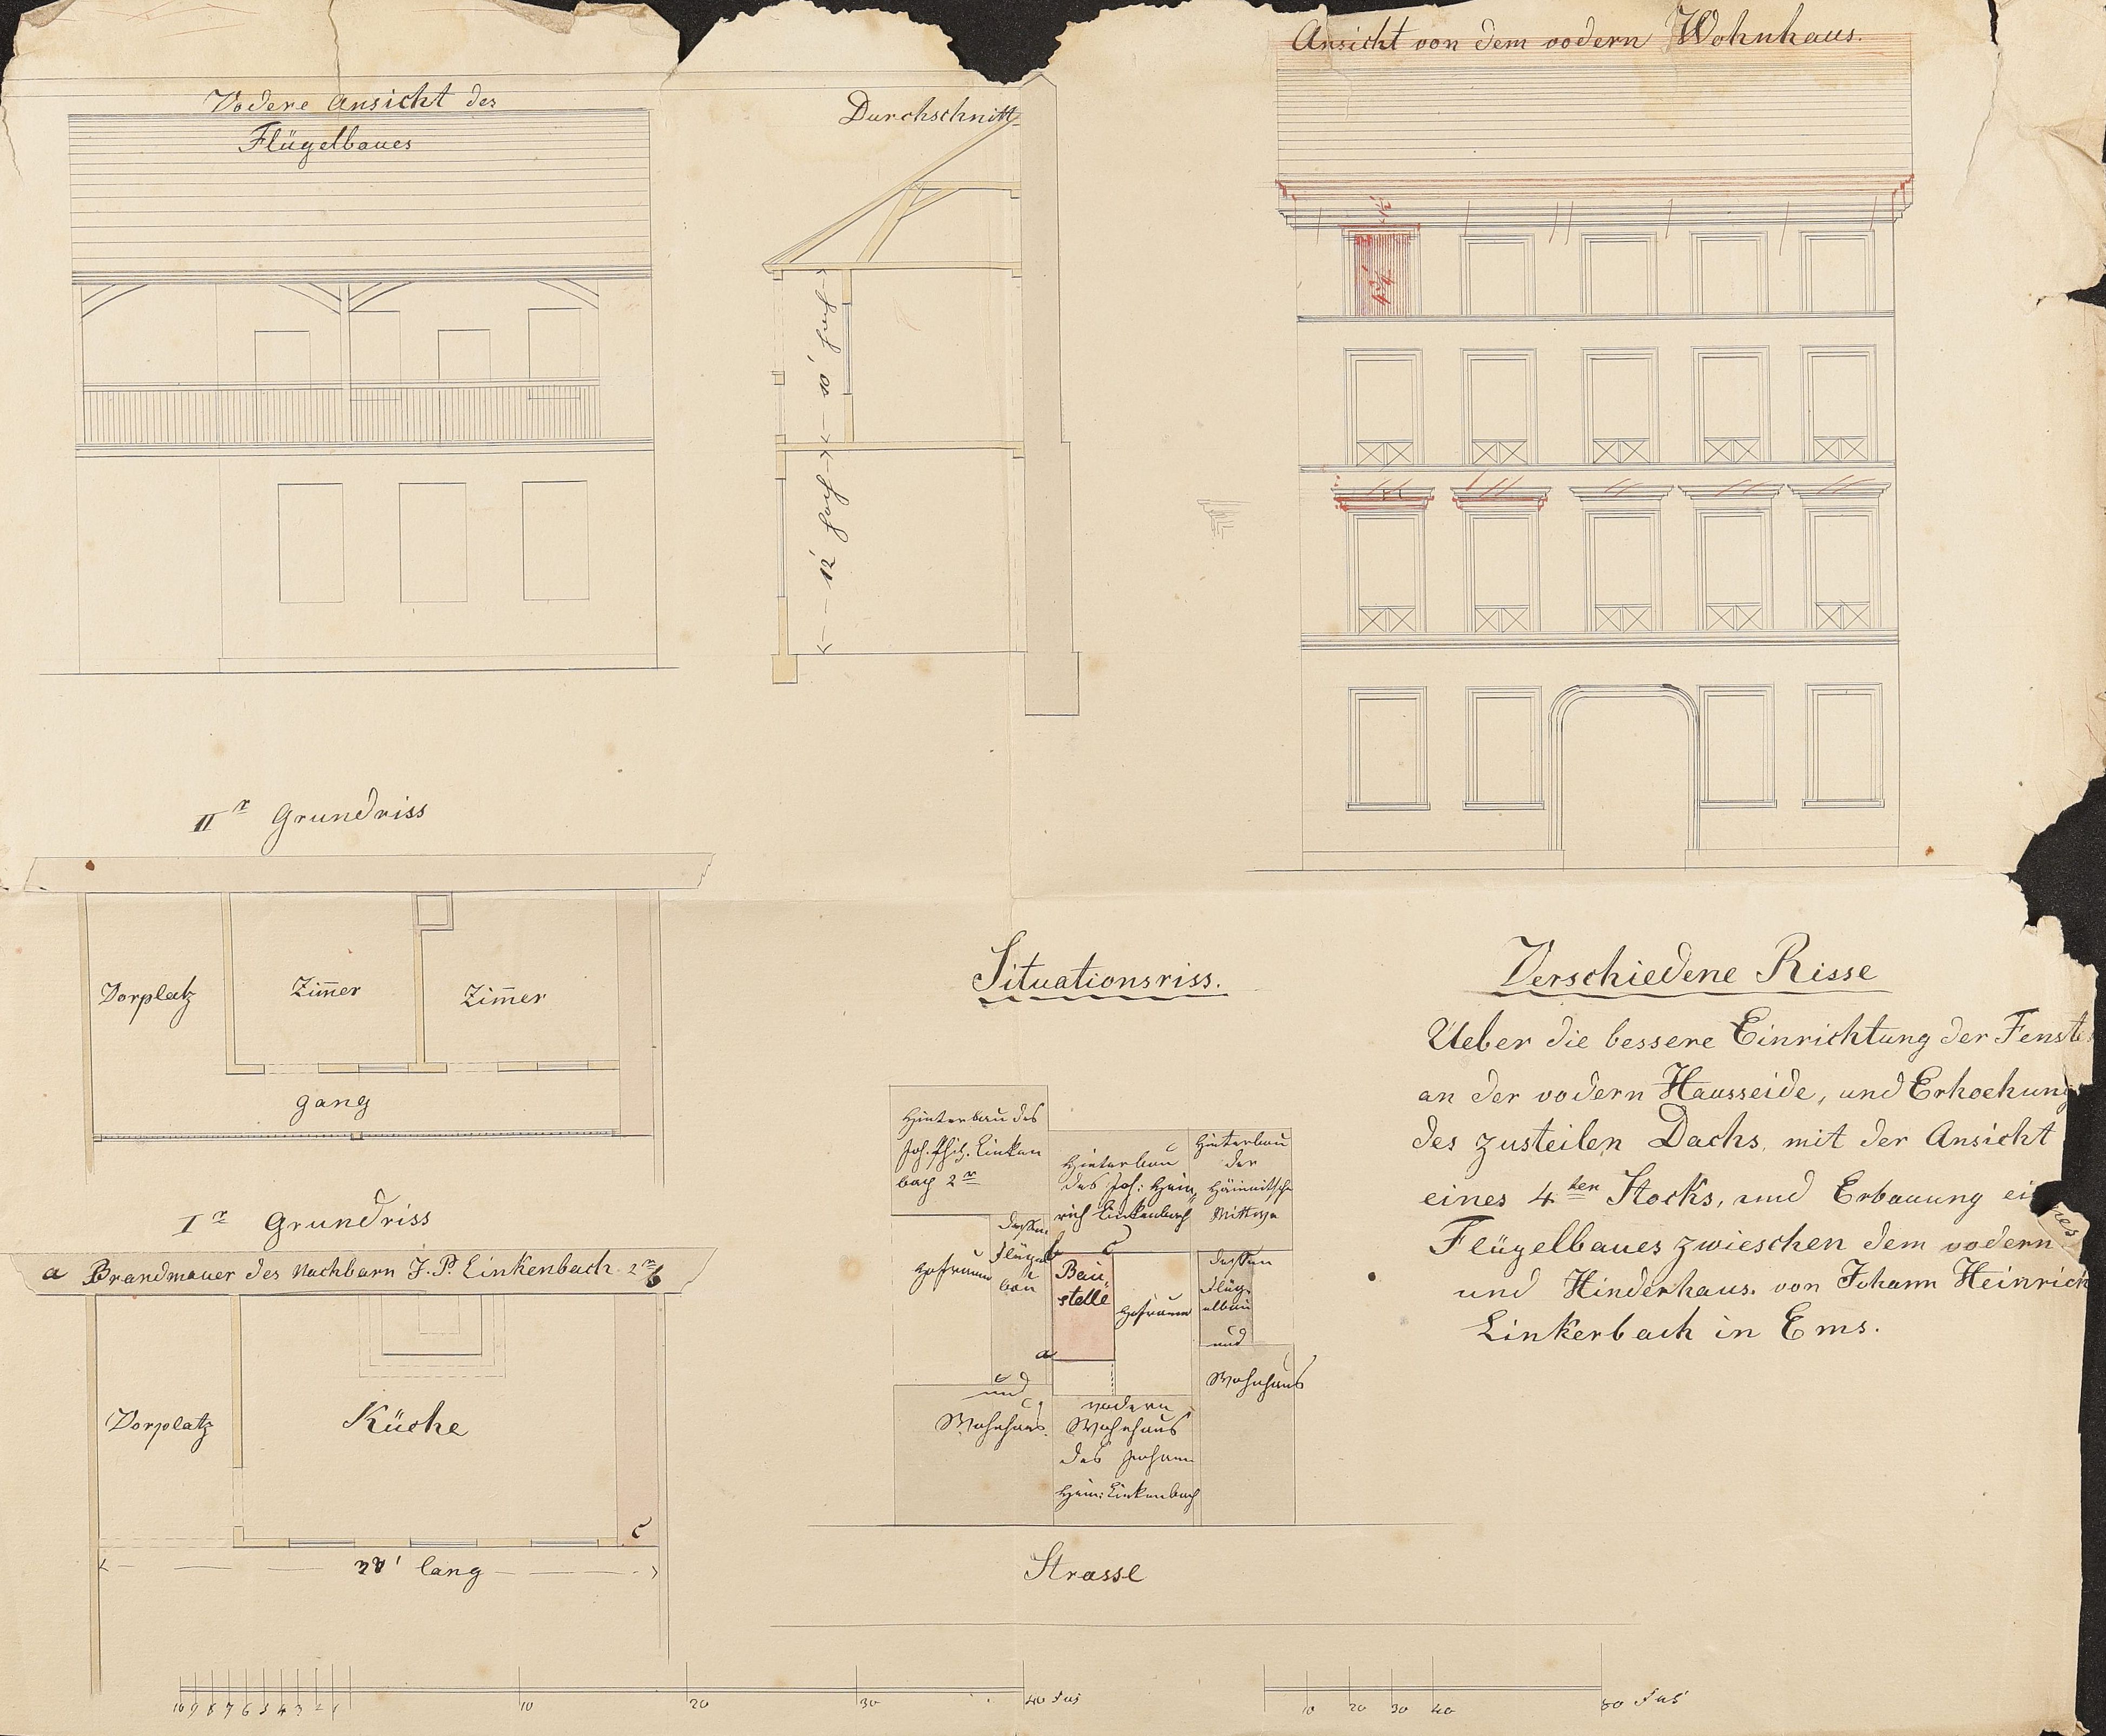 Vodere Ansicht des
Flügelbaues
Durchschnitt
10' hoch
12' hoch
Ansicht von dem vodern Wohnhaus.
II r Grundriss
Vorplatz
Zim̄er
Zim̄er
gang
I r Grundriss
a Brandmauer des Nachbarn J. P. Linkenbach 2r b
Vorplatz
Küche
c
lang
Situationsriss.
Hinterbau des
Joh. Phil. Linken
bach 2r
Hinterbau
des Joh: Hein
rich Linkenbach
Hinterbau
der
Wittwe
Hofraum
dessen
Flügel
bau
und
Wohnhaus
b
c
Bau-
stelle
a
Hofraum
dessen
Flüg-
elbau
und
Wohnhaus
vodern
Wohnhaus
des Johann
Hein: Linkenbach
Strasse
Verschiedene Risse
Ueber die bessere Einrichtung der Fenste
an der vodern Hausseide, und Erhoehung
des zusteilen Dachs, mit der Ansicht
eines 4ten Stocks, und Erbauung eines
Flügelbaues zwieschen dem vodern
und Hinderhaus. von Johann Heinrich
Linkerbach in Ems.
10 9 8 7 6 5 4 3 2 1 10 20 30 40 Fus
10 20 30 40 80 Fus